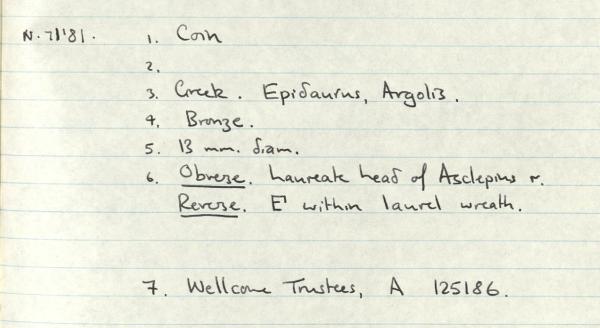 N.71'81. 1. Coin
2.
3. Greek. Epidaurus, Argolis.
4. Bronze.
5. 13 mm. diam.
6. Obverse. Laureate head of Asclepius r.
Reverse. E within laurel wreath.
7. Wellcome Trustees, A 125186.